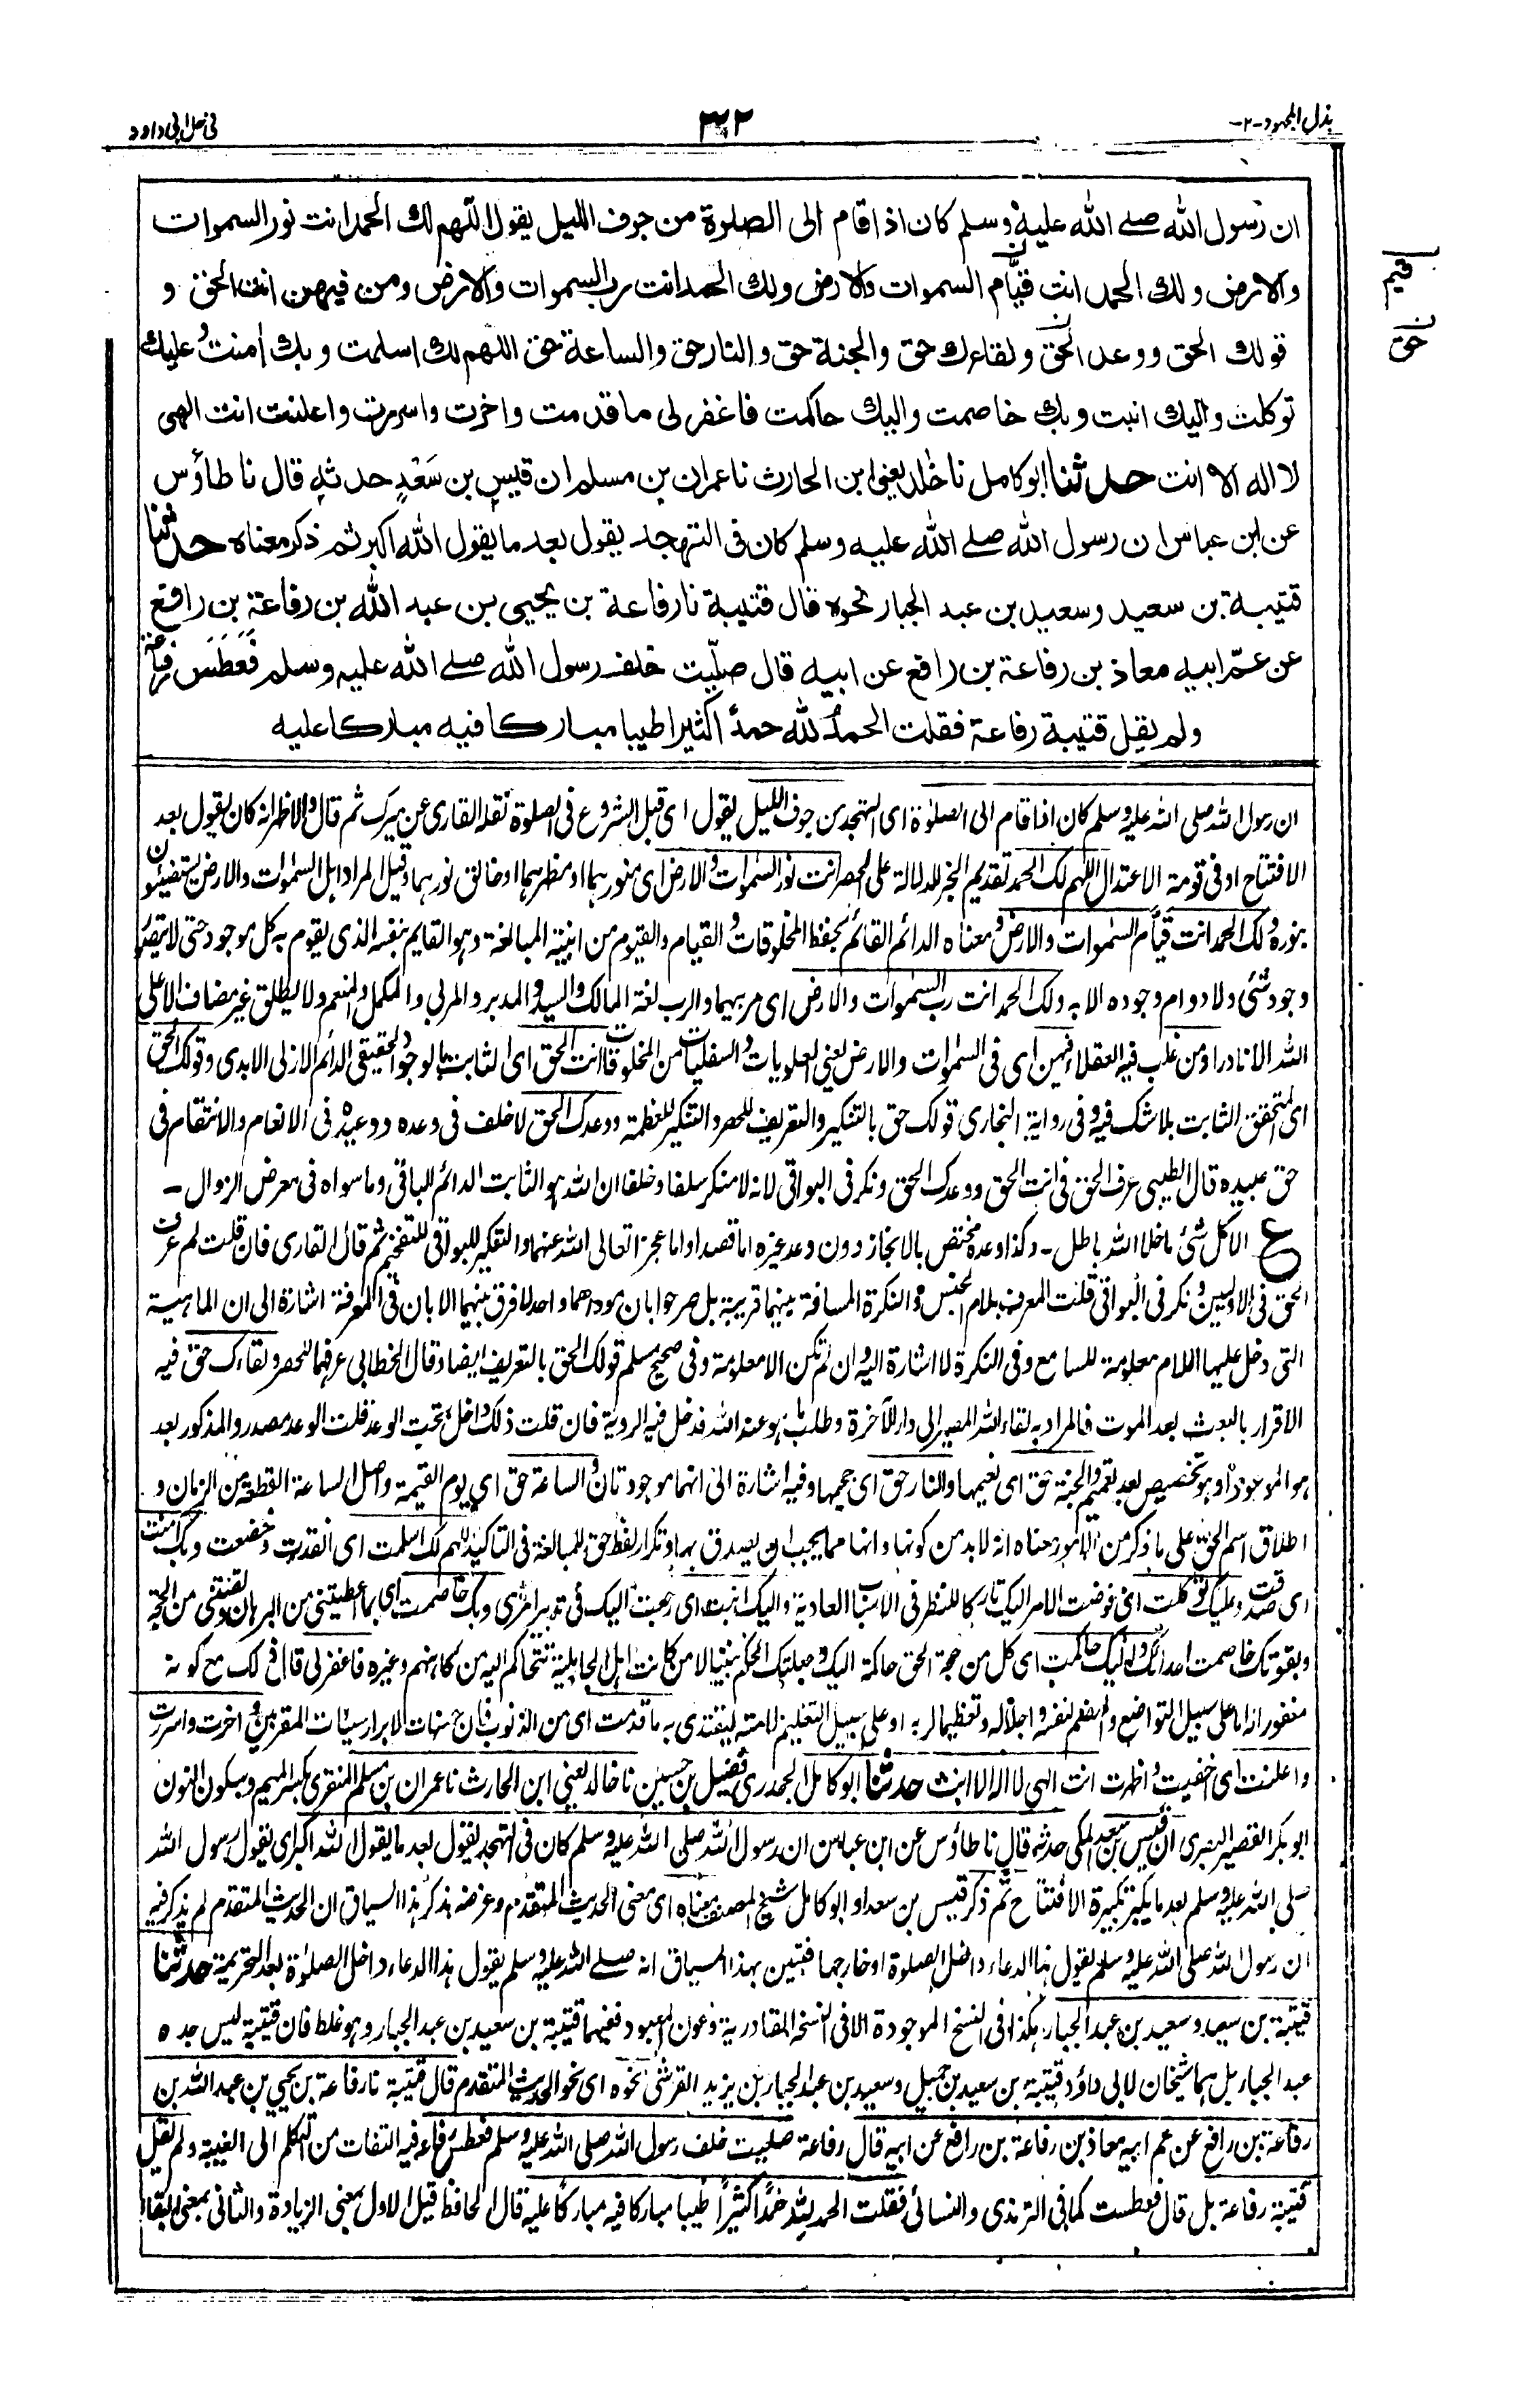 بذل المجهود -٢-
٣٢٢
فى حل ابى داود
ان رسول الله صلے الله عليه وسلم كان اذا قام الى الصلوة من جوف الليل يقول اللهم لك الحمد انت نور السموات
والارض ولك الحمد انت قيّام السموات والارض ولك الحمد انت رب السموات والارض ومن فيهن انت الحق و
قولك الحق ووعدك الحق ولقاءك حق والجنة حق والنار حق والساعة حق اللهم لك اسلمت وبك اٰمنت وعليك
توكلت واليك انبت وبك خاصمت واليك حاكمت فاغفر لى ما قدمت واخرت واسررت واعلنت انت الهى
لا اله الا انت حدثنا ابو كامل نا خٰلد يعنى ابن الحارث نا عمران بن مسلم ان قيس بن سَعْدٍ حدثه قال نا طاؤس
عن ابن عباس ان رسول الله صلے الله عليه وسلم كان فى التهجد يقول بعد ما يقول الله اكبر ثم ذكر معناه حدثنا
قتيبة بن سعيد وسعيد بن عبد الجبار نحوه قال قتيبة نا رفاعة بن يحيى بن عبد الله بن رفاعة بن رافع
عن عمّ ابيه معاذ بن رفاعة بن رافع عن ابيه قال صلّيت خلف رسول الله صلے الله عليه وسلم فَعَطَسَ رفاعة
ولم يقل قتيبة رفاعة فقلت الحمدُ لله حمدًا كثيرا طيبا مباركا فيه مباركا عليه
ن
قيم
ن
حق
ان رسول الله صلى الله عليه وسلم كان اذا قام الى الصلوٰة اى التهجد من جوف الليل يقول اى قبل الشروع فى الصلوٰة نقله القارى عن ميرك ثم قال والاظهر انه كان يقول بعد
الافتتاح او فى قومة الاعتدال اللهم لك الحمد تقديم الخبر للدلالة على الحصر انت نور السمٰوات والارض اى منورهما او مظهرهما او خالق نورهما وقيل المراد اهل السمٰوات والارض يستضيئون
بنوره ولك الحمد انت قيّام السمٰوات والارض ومعناه الدائم القائم بحفظ المخلوقات والقيام والقيوم من ابنية المبالغة وهو القايم بنفسه الذى يقوم به كل موجود حتى لا يتصور
وجود شئى ولا دوام وجوده الا به ولك الحمد انت رب السمٰوات والارض اى مربيهما والرب لغة المالك والسيد والمدبر والمربى والمكمل والمنعم ولا يطلق غير مضاف الا على
الله الا نادرا ومن غلب فيه العقلاء فيهن اى فى السمٰوات والارض يعنى العلويات والسفليات من المخلوقات انت الحق اى الثابت بالوجود الحقيقى الدائم الازلى الابدى وقولك الحق
اى المتحقق الثابت بلا شك فيه وفى رواية البخارى قولك حق بالتنكير والتعريف للحصر والتنكير للعظمة ووعدك الحق لا خلف فى وعده ووعيده فى الانعام والانتقام فى
حق عبيده قال الطيبى عرف الحق فى انت الحق ووعدك الحق ونكر فى البواقى لانه لا منكر سلفا وخلفا ان الله هو الثابت الدائم الباقى وما سواه فى معرض الزوال ۔
ع الا كل شئ ما خلا الله باطل ۔ وكذا وعده مختص بالانجاز دون وعد غيره اما قصدا واما عجزا تعالى الله عنهما والتنكير للبواقى للتفخيم ثم قال القارى فان قلت لم عرف
الحق فى الاوليين ونكر فى البواقى قلت المعرف بلام الجنس والنكرة المسافة بينهما قريبة بل صرحوا بان مؤداهما واحد لا فرق بينهما الا بان فى المعرفة اشارة الى ان الماهية
التى دخل عليها اللام معلومة للسامع وفى النكرة لا اشارة اليه وان لم تكن الا معلومة وفى صحيح مسلم قولك الحق بالتعريف ايضا وقال الخطابى عرفهما للحصر ولقاءك حق فيه
الاقرار بالبعث بعد الموت فالمراد به لقاء الله المصير الى دار الآخرة وطلب ما هو عند الله فدخل فيه الروية فان قلت ذلك داخل تحت الوعد قلت الوعد مصدر والمذكور بعد
هو الموعود او هو تخصيص بعد تعميم والجنة حق اى نعيمها والنار حق اى جحيمها وفيه اشارة الى انهما موجودتان والساعة حق اى يوم القيٰمة واصل الساعة القطعة من الزمان و
اطلاق اسم الحق على ما ذكر من الامور معناه انه لا بد من كونها وانها مما يجب ان يصدق بها وتكرار لفظ حق للمبالغة فى التاكيد اللهم لك اسلمت اى انقدت وخضعت وبك آمنت
اى صدقت وعليك توكلت اى فوضت الامر اليك تاركا للنظر فى الاسباب العادية واليك انبت اى رجعت اليك فى تدبير امرى وبك خاصمت اى بما اعطيتنى من البرهان ولقنتنى من الحجة
وبقوتك خاصمت اعدائك واليك حاكمت اى كل من جحد الحق حاكمته اليك وجعلتك الحكم بيننا لا من كانت اهل الجاهلية تتحاكم اليه من كاهنهم وغيره فاغفر لى قال ذلك مع كونه
مغفورا له اما على سبيل التواضع والهضم لنفسه واجلالا وتعظيما لربه او على سبيل التعليم لامته ليقتدى به ما قدمت اى من الذنوب فان حسنات الابرار سيئات المقربين وما اخرت واسررت
واعلنت اى اخفيت واظهرت انت الهى لا اله الا انت حدثنا ابو كامل الجحدرى فضيل بن حسين نا خالد يعنى ابن الحارث نا عمران بن مسلم المنقرى بكسر الميم وسكون النون
ابو بكر القصير البصرى ان قيس بن سعد المكى حدثه قال نا طاؤس عن ابن عباس ان رسول الله صلى الله عليه وسلم كان فى التهجد يقول بعد ما يقول الله اكبر اى يقول رسول الله
صلى الله عليه وسلم بعد ما يكبر تكبيرة الافتتاح ثم ذكر قيس بن سعد او ابو كامل شيخ المصنف معناه اى معنى الحديث المتقدم وغرضه بذكر هذا السياق ان الحديث المتقدم لم يذكر فيه
ان رسول الله صلى الله عليه وسلم يقول هذا الدعاء داخل الصلوة او خارجها فتبين بهذا السياق انه صلے الله عليه وسلم يقول هذا الدعاء داخل الصلوٰة بعد التحريمة حدثنا
قتيبة بن سعيد وسعيد بن عبد الجبار هكذا فى النسخ الموجودة الا فى النسخة القادرية وعون المعبود ففيهما قتيبة بن سعيد بن عبد الجبار وهو غلط فان قتيبة ليس جده
عبد الجبار بل هما شيخان لابى داؤد قتيبة بن سعيد بن جميل وسعيد بن عبد الجبار بن يزيد القرشى نحوه اى نحو الحديث المتقدم قال قتيبة نا رفاعة بن يحيى بن عبد الله بن
رفاعة بن رافع عن عم ابيه معاذ بن رفاعة بن رافع عن ابيه قال رفاعة صليت خلف رسول الله صلى الله عليه وسلم فعطس رفاعة فيه التفات من التكلم الى الغيبة ولم يقل
قتيبة رفاعة بل قال فعطست كما فى الترمذى والنسائى فقلت الحمد لله حمدًا كثيرًا طيبا مباركا فيه مباركًا عليه قال الحافظ قيل الاول بمعنى الزيادة والثانى بمعنى البقاء